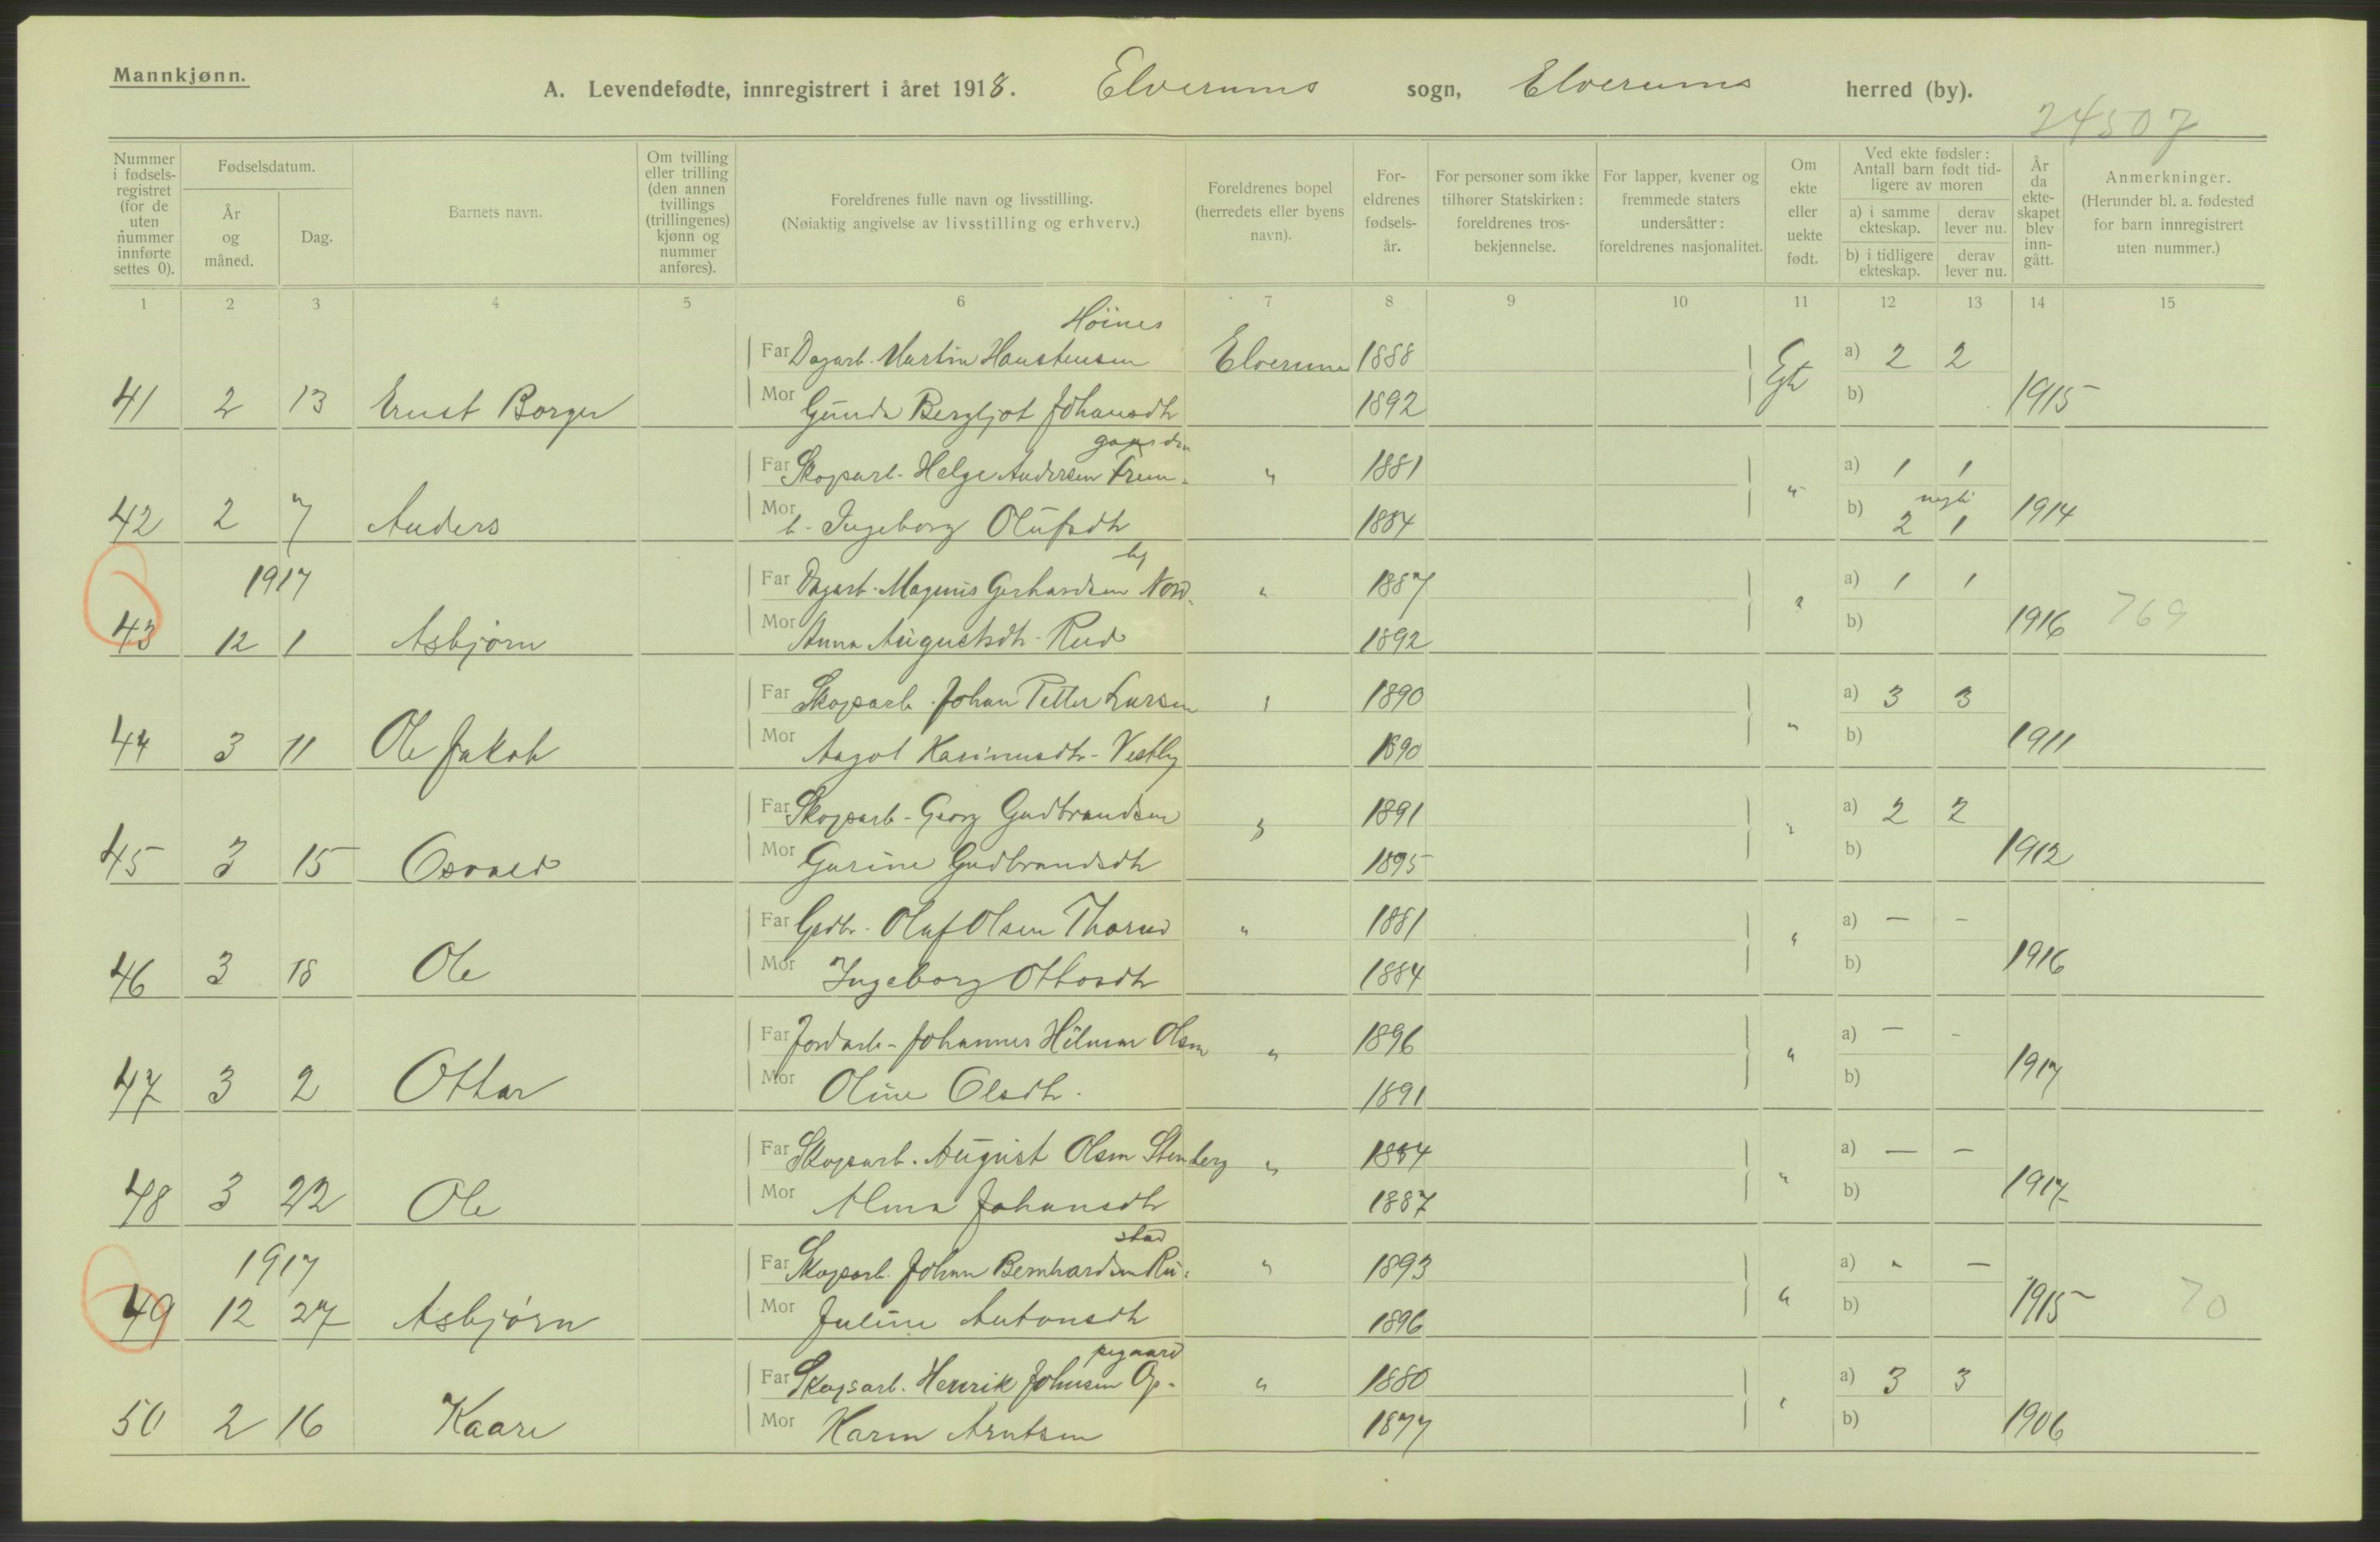 Mannkjønn.
A. Levendefødte, innregistrert i året 1918. Elverums sogn, Elverums herred (by).
24507
Nummer i fødselsregistret (for de uten nummer innførte settes 0).
Fødselsdatum.
År og måned.
Dag.
Barnets navn.
Om tvilling eller trilling (den annen tvillings (trillingenes) kjønn og nummer anføres).
Foreldrenes fulle navn og livsstilling.
(Nøiaktig angivelse av livsstilling og erhverv.)
Foreldrenes bopel (herredets eller byens navn).
Foreldrenes fødselsår.
For personer som ikke tilhører Statskirken: foreldrenes trosbekjennelse.
For lapper, kvener og fremmede staters undersåtter: foreldrenes nasjonalitet.
Om ekte eller uekte født.
Ved ekte fødsler: Antall barn født tidligere av moren
a) i samme ekteskap. derav lever nu.
b) i tidligere ekteskap. derav lever nu.
År da ekteskapet blev inngått.
Anmerkninger.
(Herunder bl. a. fødested for barn innregistrert uten nummer.)
1 2 3 4 5 6 7 8 9 10 11 12 13 14 15
Höines
Far Dagarb. Martin Haustensen Elverum 1888 Egte a) 2 2
41 2 13 Ernst Borger Mor Gunda Bergljot Johansdtr 1892 b) 1915
gaarden
Far Skogsarb. Helge Andersen Frem- " 1881 " a) 1 1
42 2 7 Anders Mor h. Ingeborg Olufsdtr 1884 b) 2 1 1914
by
1917 Far Dagarb. Magnus Gerhardsen Nord- " 1887 " a) 1 1
43 12 1 Asbjörn Mor Anna Augustsdtr Rud 1892 b) 1916 769
Far Skogsarb. Johan Petter Larsen " 1890 " a) 3 3
44 3 11 Ole Jakob Mor Aagot Kasinusdtr - Vestby 1890 b) 1911
Far Skogsarb - Georg Gudbrandsen " 1891 " a) 2 2
45 3 15 Osvald Mor Gurine Gudbrandsdtr 1895 b) 1912
Far Grdbr. Oluf Olsen Thorud " 1881 " a) — –
46 3 18 Ole Mor Ingeborg Ottosdtr 1884 b) 1916
Far Jordarb - Johannes Hilmar Olsen " 1896 " a) — -
47 3 2 Ottar Mor Oline Olsdtr. 1891 b) 1917
Far Skogsarb. August Olsen Stenberg " 1884 " a) — –
48 3 22 Ole Mor Alma Johansdtr 1887 b) 1917
stad
1917 Far Skogsarb. Johan Bernhardsen Ru- " 1893 " a) - —
49 12 27 Asbjörn Mor Juline Antonsdtr 1896 b) 1915 70
pegaard
Far Skogsarb. Henrik Johnsen Op- " 1880 " a) 3 3
50 2 16 Kaare Mor Karen Arntsen 1877 b) 1906